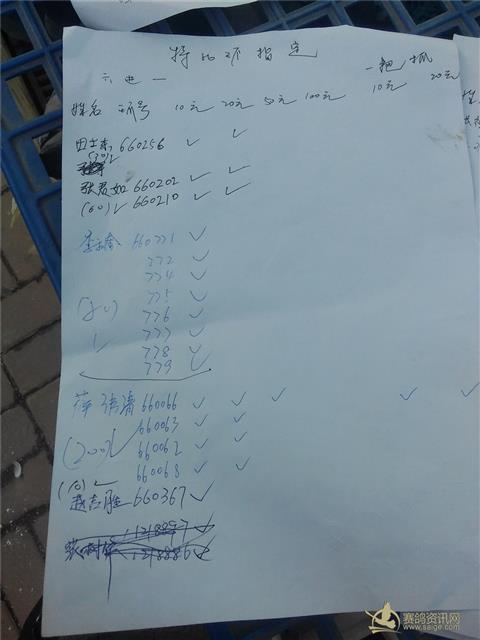 特比环指定
一把抓
姓名 环号 10元 20元 50元 100元 10元 20元
田士 660256 ✓ ✓
(30) ✓
张 如 660202 ✓ ✓
(60) ✓ 660210 ✓ ✓
李 660771 ✓
772 ✓
774 ✓
775 ✓
(80) 776 ✓
✓ 777 ✓
778 ✓
779 ✓
660066 ✓ ✓ ✓ ✓ ✓
660063 ✓ ✓
(200) ✓ 660062 ✓ ✓
660068 ✓ ✓
(10) ✓
赵志胜 660367 ✓
1218897 ✓
1218886 ✓
赛鸽资讯网
www.saige.com